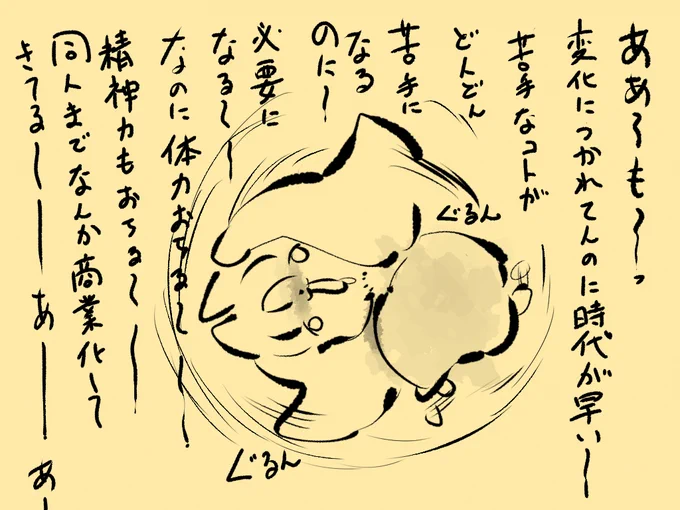 ああ〜も〜っ
変化につかれてんのに時代が早い〜
苦手なコトが
どんどん
苦手に
なる
のに〜
必要に
なる〜〜
なのに体力おちる〜〜!
精神力もおちる〜〜
同人までなんか商業化して
きてる〜ーーあーー!あー
ぐるん
ぐるん